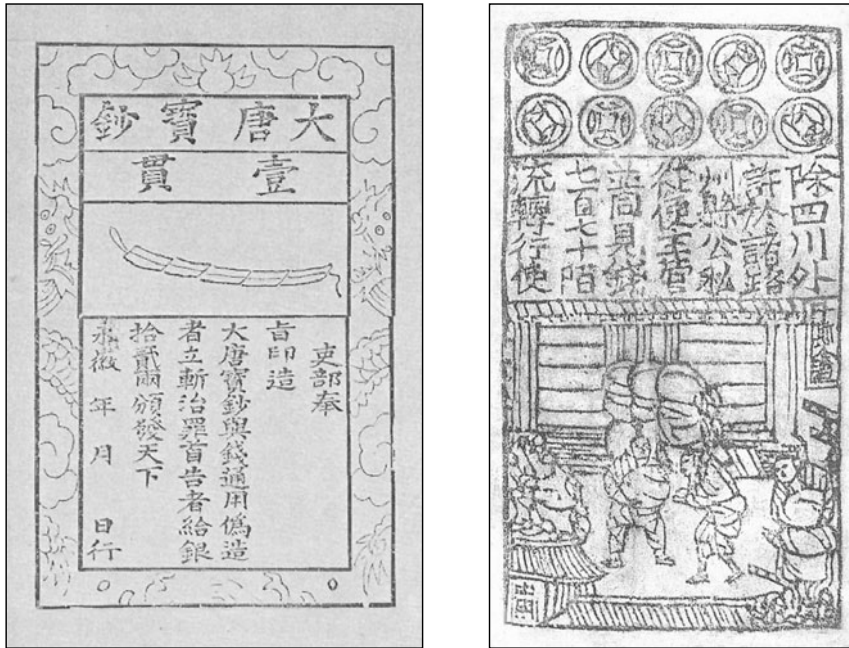 大唐寶鈔
壹貫
吏部奉
旨印造
大唐寶鈔與錢通用偽造
者立斬治罪首告者給銀
拾貳兩頒發天下
永徽 年 月 日行
除四川外
許於諸路
州縣公私
從便主管
並同見錢
七百七十陌
流轉行使